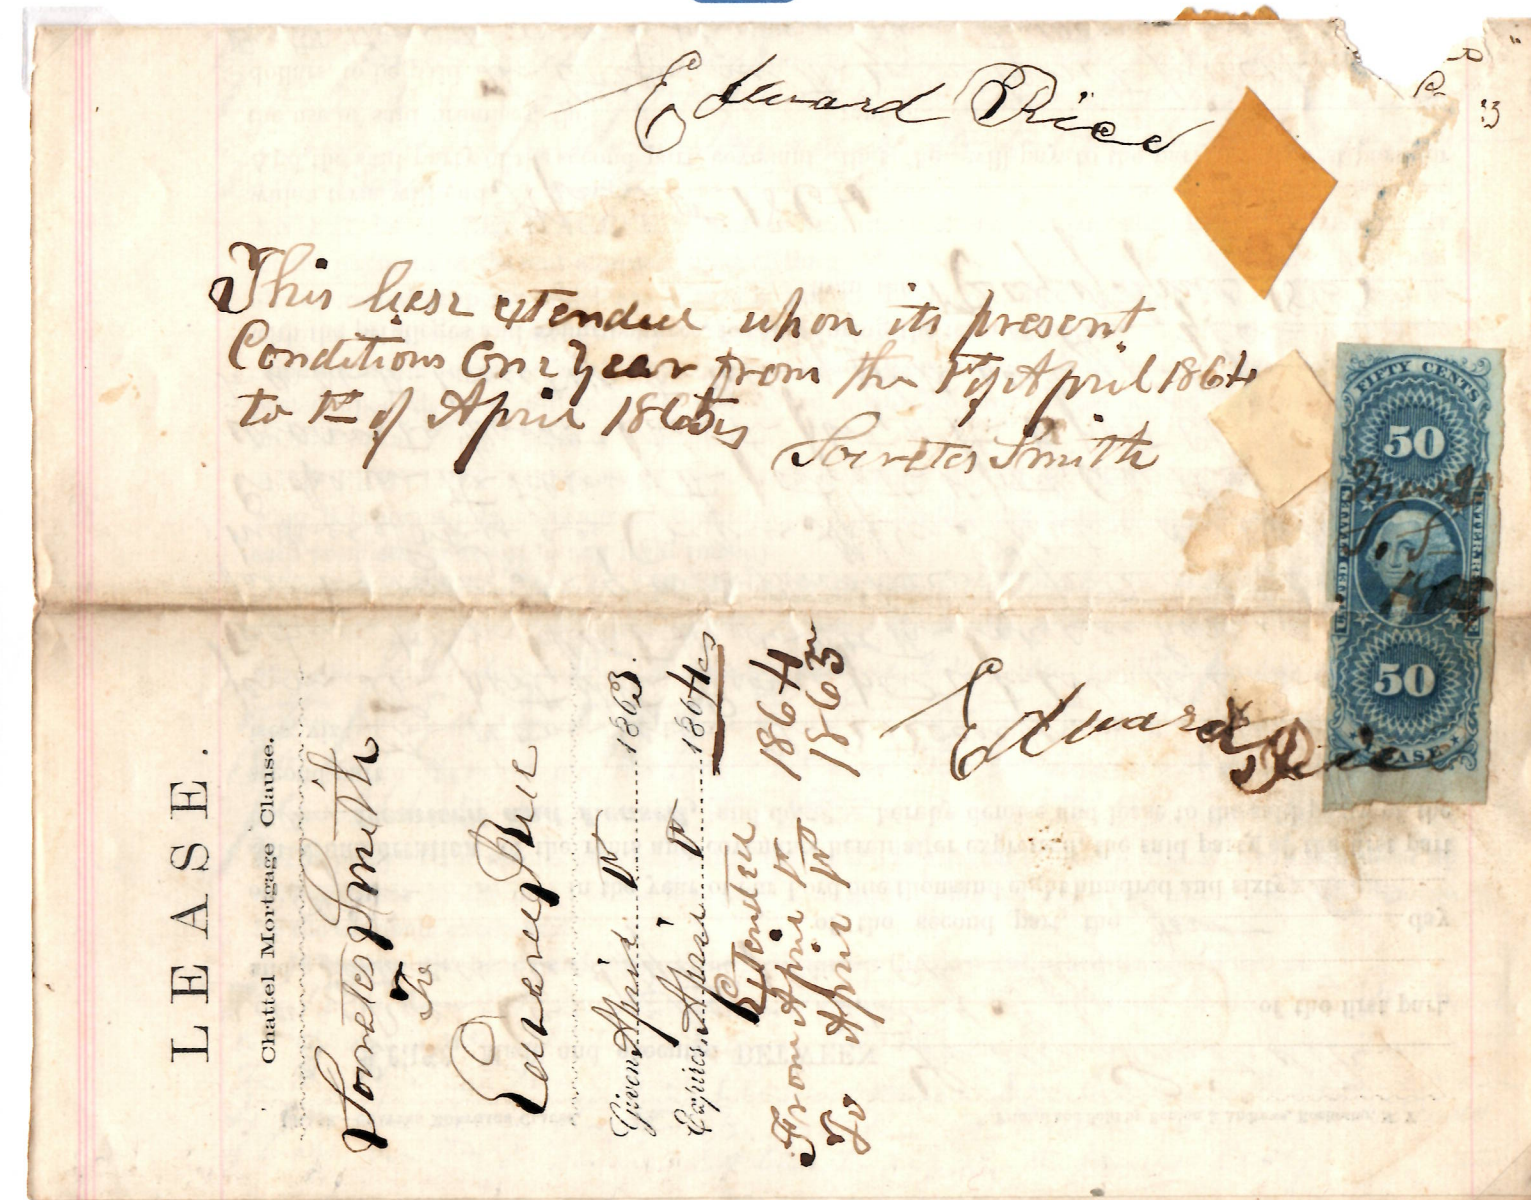 Edward Rice
This lease extended upon its present
Conditions One Year from the 1st of April 1864
to 1st of April 1865
Socrates Smith
FIFTY CENTS
50
UNITED STATES
S. S.
50
Edward Rice
LEASE.
Chattel Mortgage Clause.
Socrates Smith
To
Given April 1st 1863.
Expires April 1st 1864
Extended
From April 1st 1864
To April 1st 1865